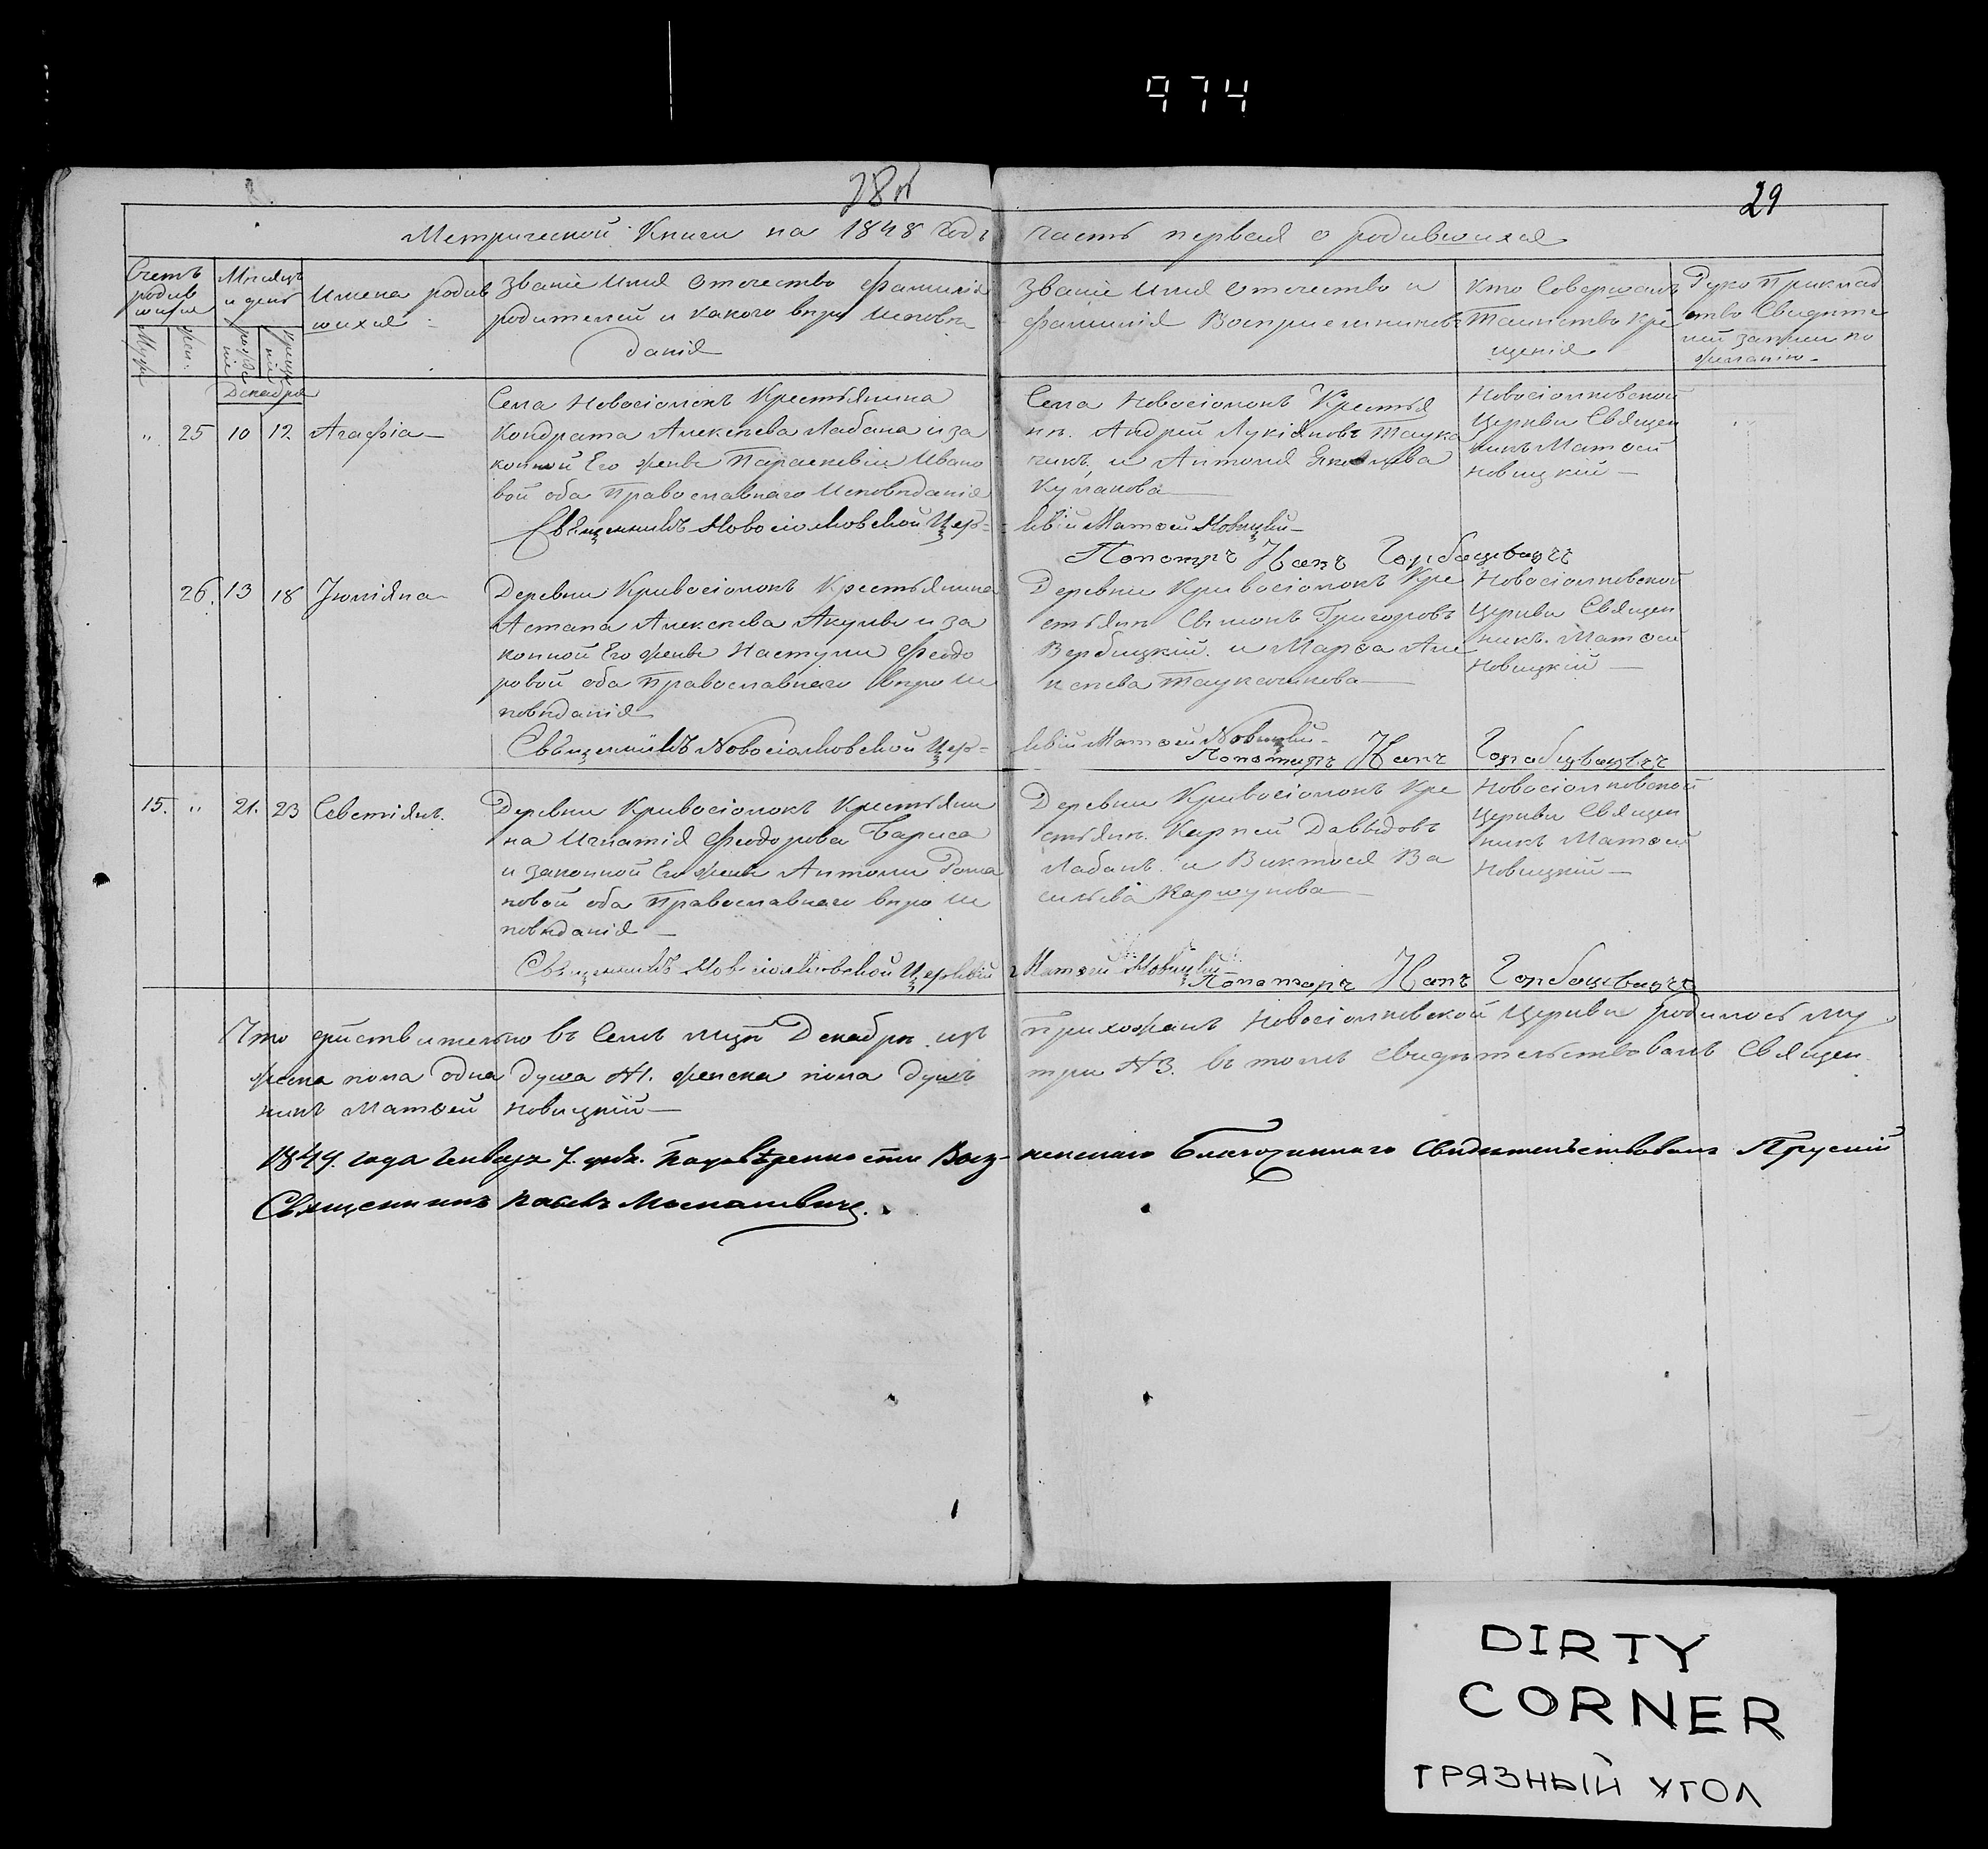 974
28
29
Метрической Книги на 1848 Годъ часть первая о родившихся
Счетъ родив шихся
Муж
жен.
Мѣсяцъ и день
рожде ніе
креще нія
Имена родив
шихся
Званіе Имя Отечество фамилія
родителей и какого вѣро Исповѣ
данія
Званіе Имя Отечество и
фамилія Воспріемниковъ
Кто Совершалъ
Таинство Кре
щенія
Руко Приклад
ство Свидѣте
лей записи по
желанію
Декабря
" 25 10 12 Агафіа
Села Новосіолокъ Крестьянина
Кондрата Алексѣева Лабана и за
конной Его жены Параскевіи Ивано
вой оба Православнаго Исповѣданія
Села Новосіолокъ Крестья
нъ. Андрей Лукіяновъ Таука
чикъ, и Антоля Яковлева
Кулакова
Новосіолковской
Церкви Священ
никъ Матѳей
Новицкій
Священникъ Новосіолковской Цер-
квіи Матѳей Новицкій
Пономарь Иванъ Горбацевичъ
26. 13 18 Іюліяна
Деревни Кривосіолокъ Крестьянина
Астапа Алексѣева Акулы и за
конной Его жены Настули Феодо
ровой оба Православнаго вѣро Ис
повѣданія
Деревни Кривосіолокъ Кре
стьянъ Сымонъ Григоровъ
Вербицкій. и Марѳа Але
ксѣева Таукачикова
Новосіолковской
Церкви Священ
никъ. Матѳей
Новицкій
Священникъ Новосіолковской Цер-
квіи Матѳей Новицкій
Пономарь Иванъ Горбацевичъ
15. " 21. 23 Севастіянъ.
Деревни Кривосіолокъ Крестьяни
на Игнатія Феодорова Бариса
и законной Его жены Антоли Рома
новой оба Православнаго вѣро Ис
повѣданія
Деревни Кривосіолокъ Кре
стьянъ. Карпей Давыдовъ
Лабанъ. и Виктося Ва
сильева Каршунова
Новосіолковской
Церкви Священ
никъ Матѳей
Новицкій
Священникъ Новосіолковской Церквій
Матѳей Новицкій
Пономарь Иванъ Горбацевичъ
Что дѣйствительно въ Семъ мцѣ Декабрѣ изъ прихожанъ Новосіолковской Церкви родилось му
жеска пола одна душа №1. женска пола душъ три №3. въ томъ свидѣтельствовалъ Священ
никъ Матѳей Новицкій
1849. года Января 7. дня. По довѣренности Воз- несенскаго Благочиннаго Свидѣтельствовалъ Прускій
Священникъ
DIRTY
CORNER
ГРЯЗНЫЙ УГОЛ